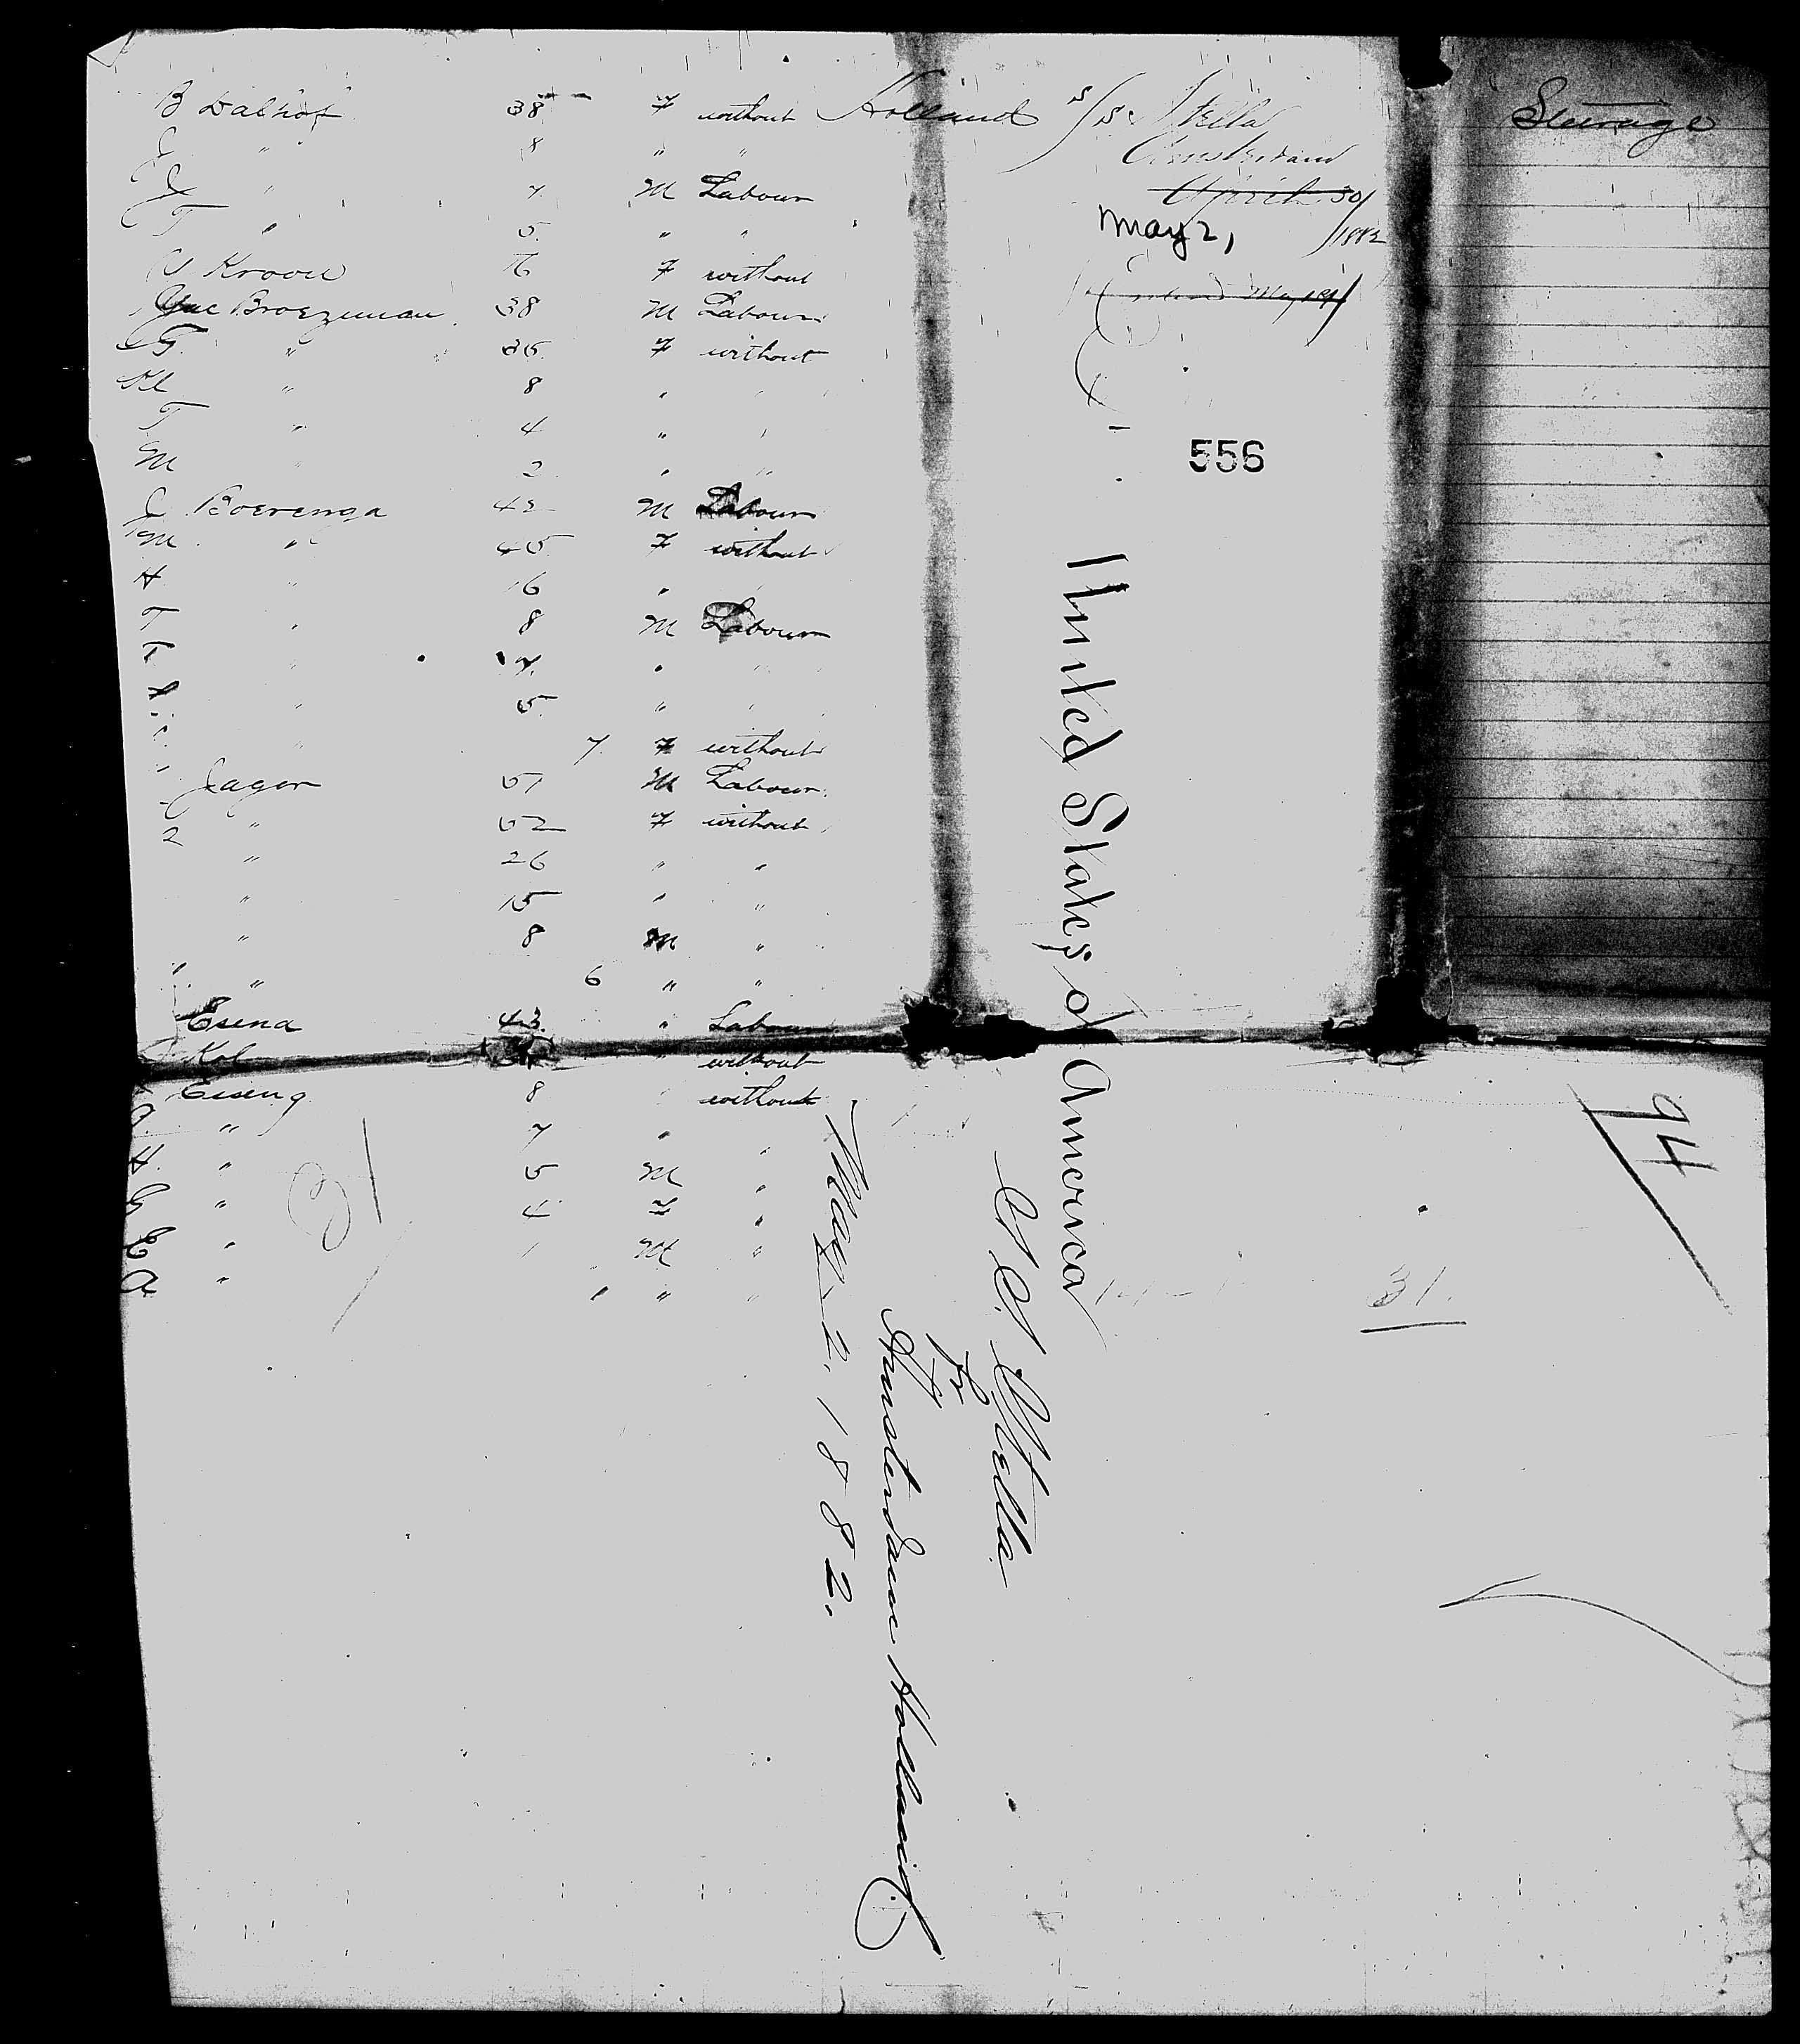 B Dalhof 38 F without Holland
J " 8 " "
J " 7 M Labour
T " 5 " "
Kroon 76 F without
Broezeman 38 M Labour
G " 36 F without
Kl " 8 " "
T " 4 " "
M " 2 " "
J Boerenga 42 M Labour
M " 45 F without
H " 16 "
T " 8 M Labour
" 7 " "
" 5 " "
" 7 F without
Jager 51 M Labour
2 " 52 F without
" 26 " "
" 15 " "
" 8 M "
" 6 " "
Esena 43 " Labour
Kol " without
Eiseng 8 without
" 7 " "
H. " 5 M "
G " 4 F "
" 1 M "
A " " " "
s/s Stella
Amsterdam
April 30/
May 2, /1882
556
Steerage
United States of America
S. S. Stella
fr
Amsterdam Holland
May 2. 1882.
31
94
31.